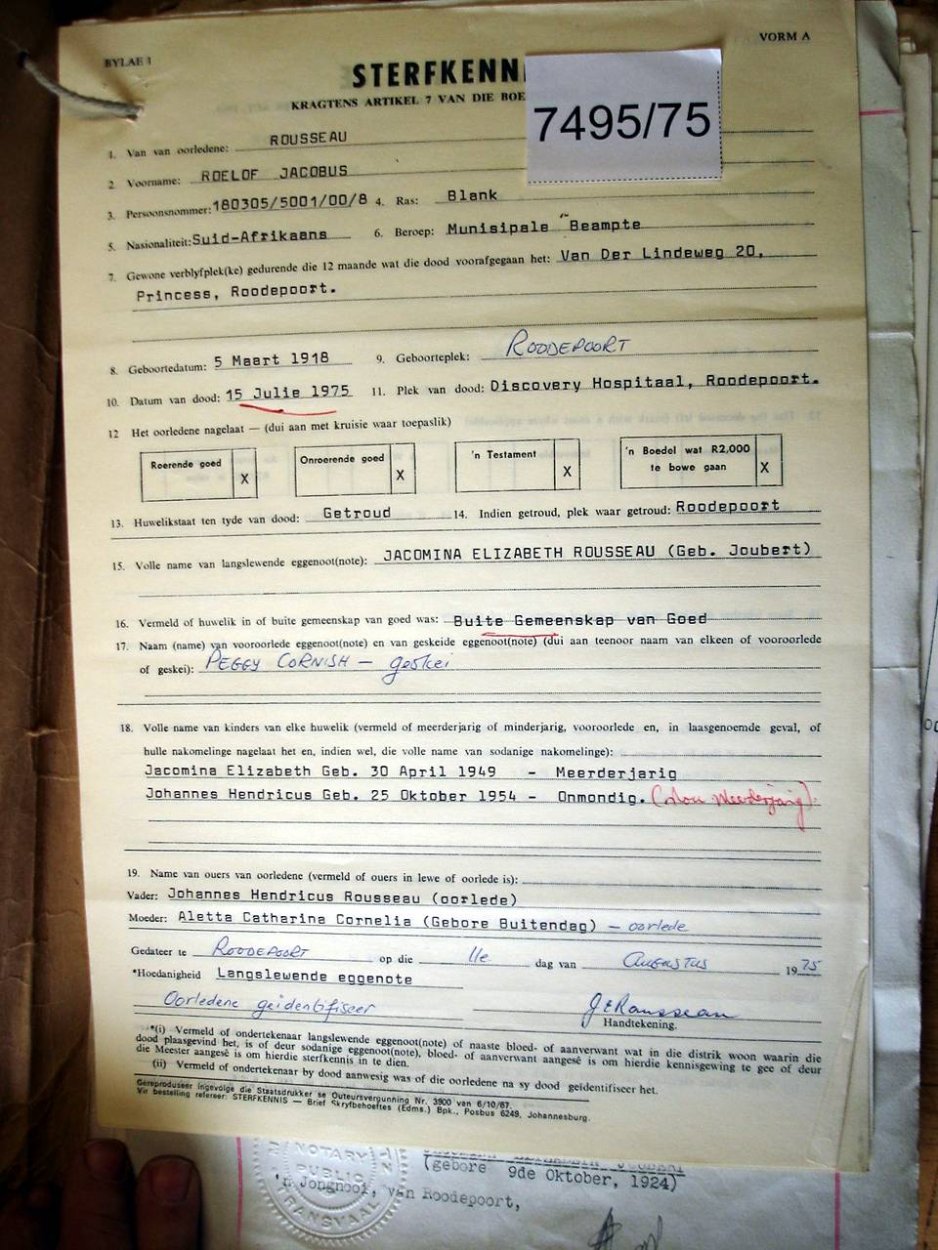 BYLAE I
VORM A
STERFKENNI
KRAGTENS ARTIKEL 7 VAN DIE BOE
7495/75
1. Van van oorledene: ROUSSEAU
2 Voorname: ROELOF JACOBUS
3. Persoonsnommer: 180305/5001/00/8 4. Ras: Blank
5. Nasionaliteit: Suid-Afrikaans 6. Beroep: Munisipale Beampte
7. Gewone verblyfplek(ke) gedurende die 12 maande wat die dood voorafgegaan het: Van Der Lindeweg 20,
Princess, Roodepoort.
8. Geboortedatum: 5 Maart 1918 9. Geboorteplek: ROODEPOORT
10. Datum van dood: 15 Julie 1975 11. Plek van dood: Discovery Hospitaal, Roodepoort.
12 Het oorledene nagelaat — (dui aan met kruisie waar toepaslik)
Roerende goed X Onroerende goed X 'n Testament X 'n Boedel wat R2,000 te bowe gaan X
13. Huwelikstaat ten tyde van dood: Getroud 14. Indien getroud, plek waar getroud: Roodepoort
15. Volle name van langslewende eggenoot(note): JACOMINA ELIZABETH ROUSSEAU (Geb. Joubert)
16. Vermeld of huwelik in of buite gemeenskap van goed was: Buite Gemeenskap van Goed
17. Naam (name) van vooroorlede eggenoot(note) en van geskeide eggenoot(note) (dui aan teenoor naam van elkeen of vooroorlede
of geskei): PEGGY CORNISH — geskei
18. Volle name van kinders van elke huwelik (vermeld of meerderjarig of minderjarig, vooroorlede en, in laasgenoemde geval, of
hulle nakomelinge nagelaat het en, indien wel, die volle name van sodanige nakomelinge):
Jacomina Elizabeth Geb. 30 April 1949 - Meerderjarig
Johannes Hendricus Geb. 25 Oktober 1954 - Onmondig. (nou Meerderjarig).
19. Name van ouers van oorledene (vermeld of ouers in lewe of oorlede is):
Vader: Johannes Hendricus Rousseau (oorlede)
Moeder: Aletta Catharina Cornelia (Gebore Buitendag) — oorlede
Gedateer te ROODEPOORT op die 11e dag van AUGUSTUS 1975
*Hoedanigheid Langslewende eggenote
Oorledene geidentifiseer JERousseau
Handtekening.
*(i) Vermeld of ondertekenaar langslewende eggenoot(note) of naaste bloed- of aanverwant wat in die distrik woon waarin die
dood plaasgevind het, is of deur sodanige eggenoot(note), bloed- of aanverwant aangesê is om hierdie kennisgewing te gee of deur
die Meester aangesê is om hierdie sterfkennis in te dien.
(ii) Vermeld of ondertekenaar by dood aanwesig was of die oorledene na sy dood geïdentifiseer het.
Gereproduseer ingevolge die Staatsdrukker se Outeursvergunning Nr. 3900 van 6/10/67.
Vir bestelling refereer: STERFKENNIS — Brief Skryfbehoeftes (Edms.) Bpk., Posbus 6249, Johannesburg.
NOTARY
PUBLIC
TRANSVAAL
(gebore 9de Oktober, 1924)
'n Jongnooi, van Roodepoort,